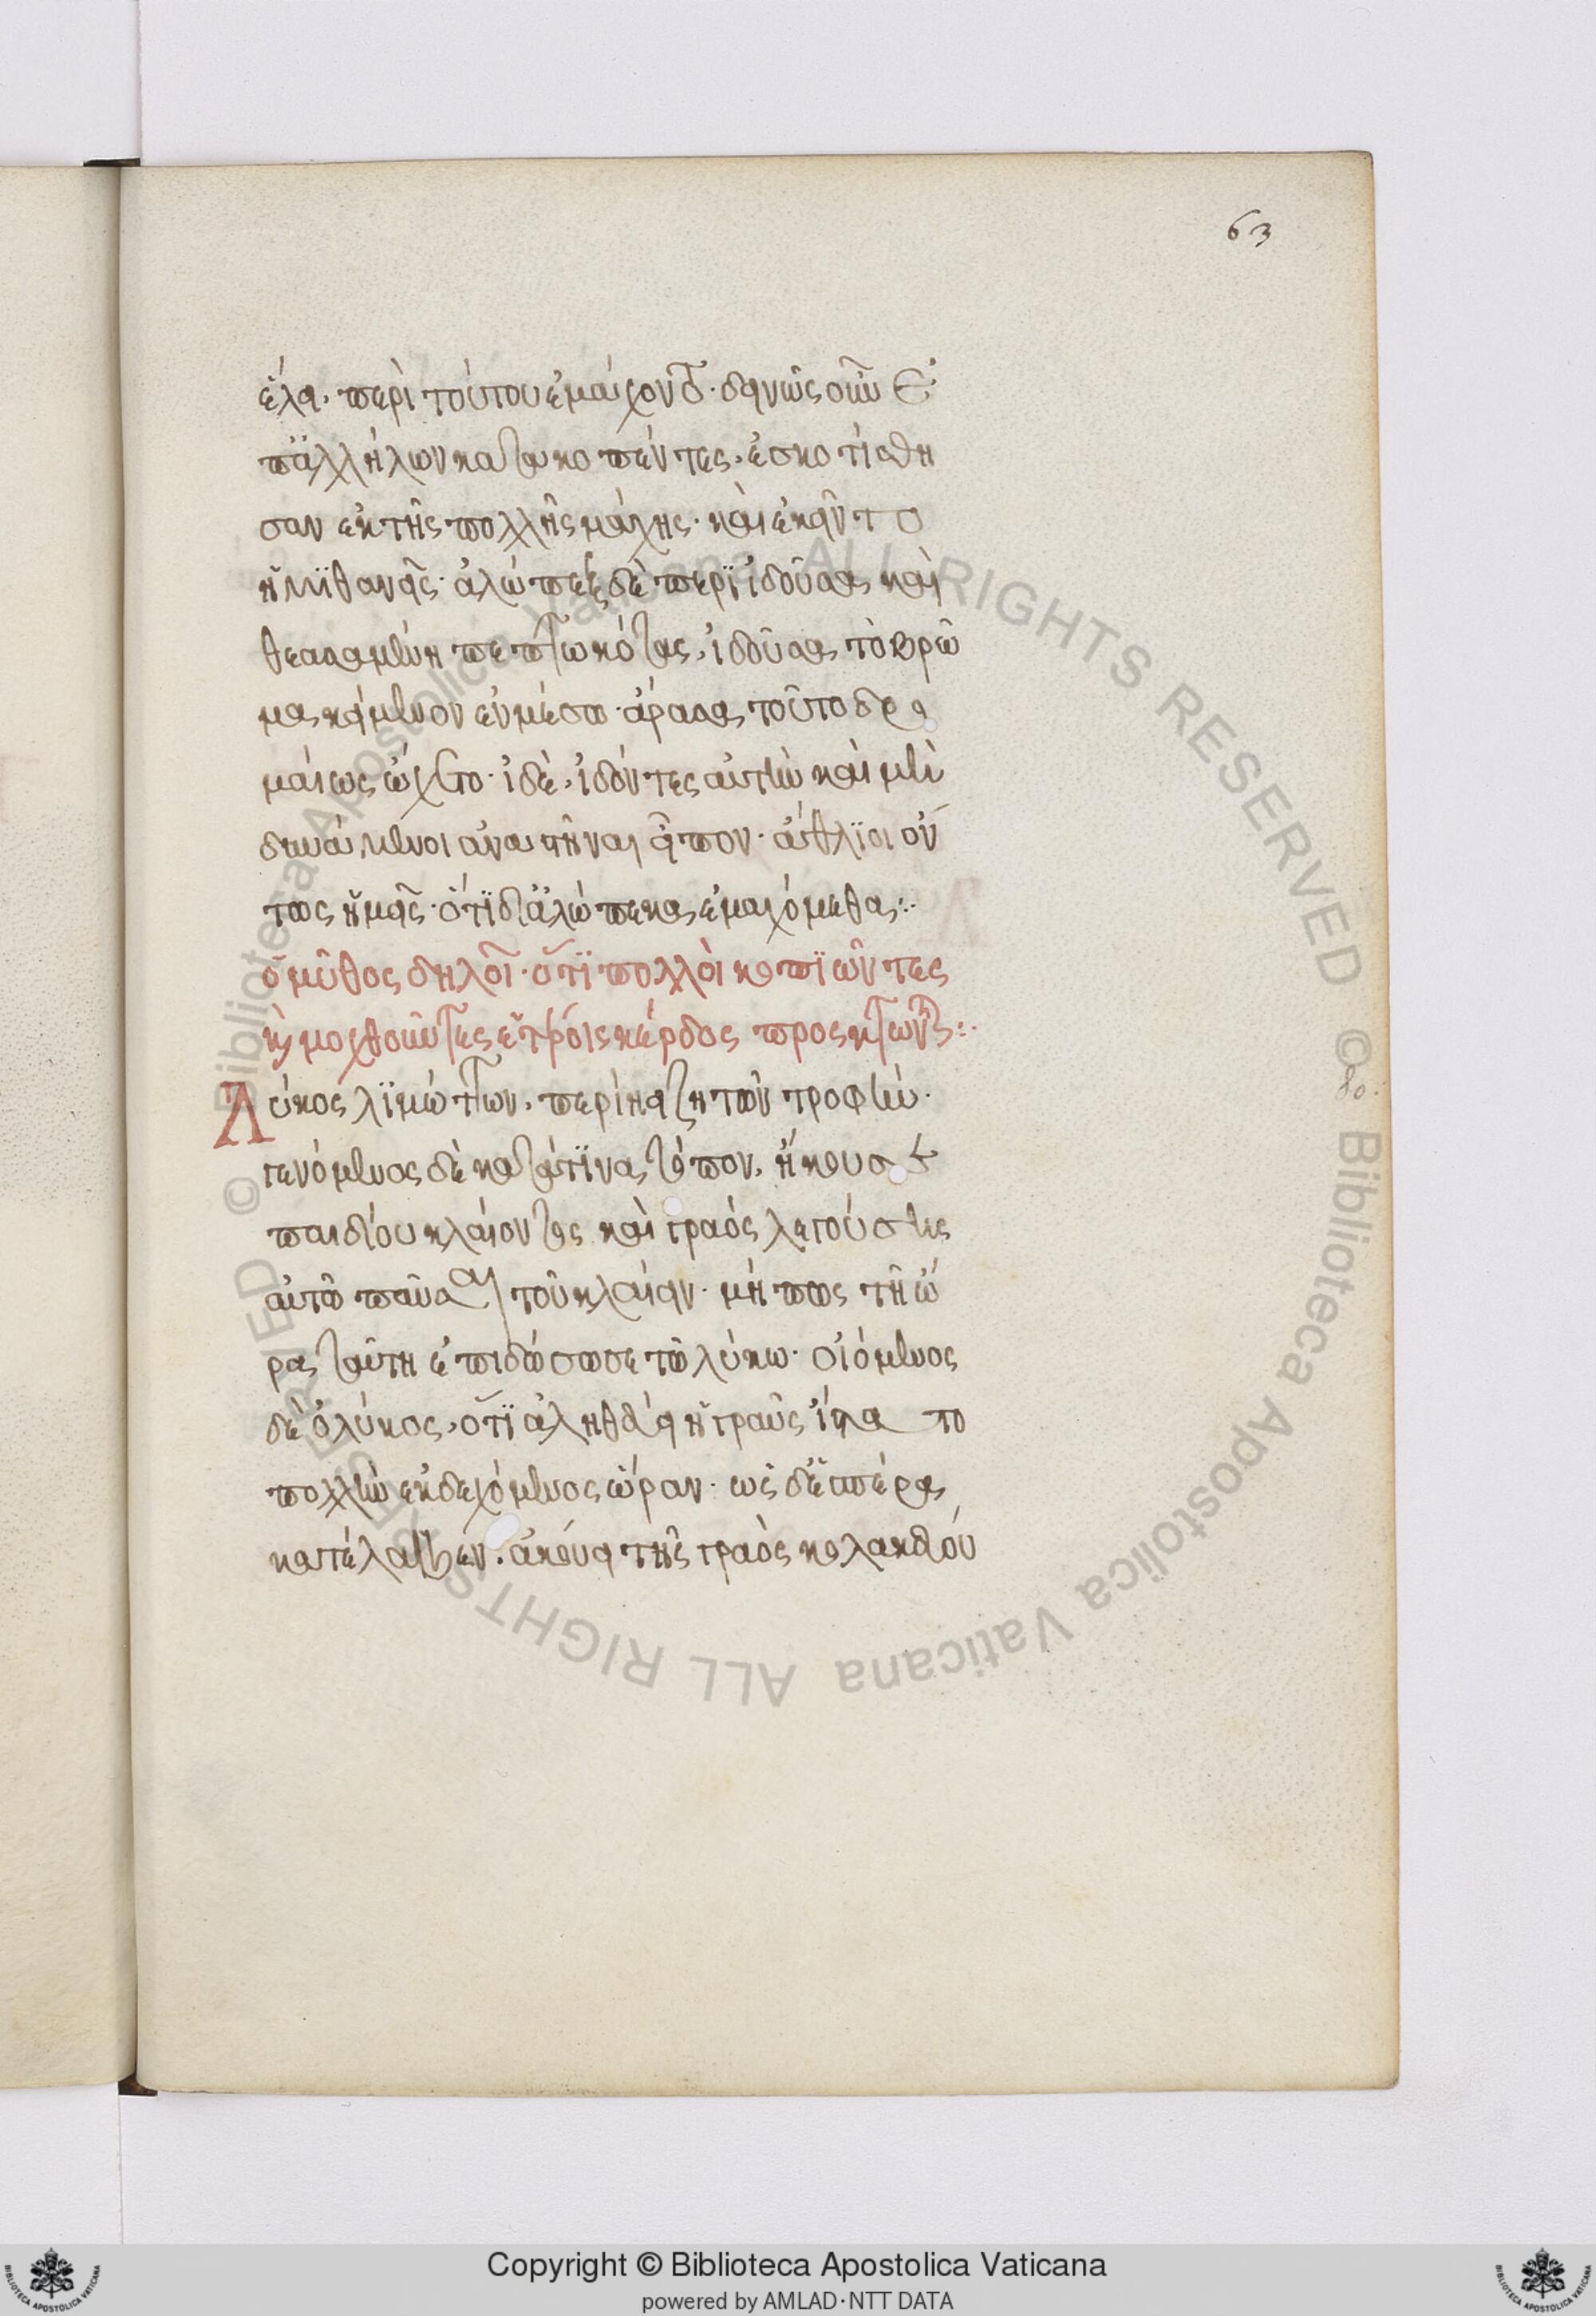 63
εἷλα. περὶ τούτου ἐμάχοντο. δεινῶς οὖν ὑ
π' ἀλλήλων κατακοπέντες, ἐσκοτίσθη
σαν ἐκ τῆς πολλῆς μάχης. καὶ ἔκειντο
ἡμιθανεῖς. ἀλώπηξ δὲ περιϊδοῦσα καὶ
θεασαμένη πεπτωκότας, ἰδοῦσα τὸ βρῶ
μα κείμενον ἐν μέσω. ἄρασα τοῦτο δρο
μαίως ὤχετο. οἱ δὲ, ἰδόντες αὐτὴν καὶ μὴ
δυνάμενοι ἀναστῆναι εἶπον. ἄθλϊοι ὄν
τως ἡμεῖς. ὅτϊ δι' ἀλώπεκα ἐμαχόμεθα:.
ὁ μῦθος δηλοῖ. ὅτϊ πολλοὶ κοπϊῶντες
καὶ μοχθοῦντες ἑτέροις κέρδος προσκτῶνται:.
Λύκος λϊμώττων, περιήει ζητῶν τροφήν.
γενόμενος δὲ κατά τϊνα τόπον, ἤκουσε
παιδίου κλαίοντος καὶ γραὸς λεγούσης
αὐτῶ παῦσαι τοῦ κλαίειν. μή πως τῆ ὥ
ρα ταύτη ἐπιδώσω σε τῶ λύκω. οἰόμενος
δὲ ὁ λύκος, ὅτϊ ἀληθεύει ἡ γραῦς ἵστατο
πολλὴν ἐκδεχόμενος ὥραν. ὡς δ' ἑσπέρα
κατέλαβεν. ἀκούει τῆς γραὸς κολακευού
Copyright © Biblioteca Apostolica Vaticana
powered by AMLAD·NTT DATA